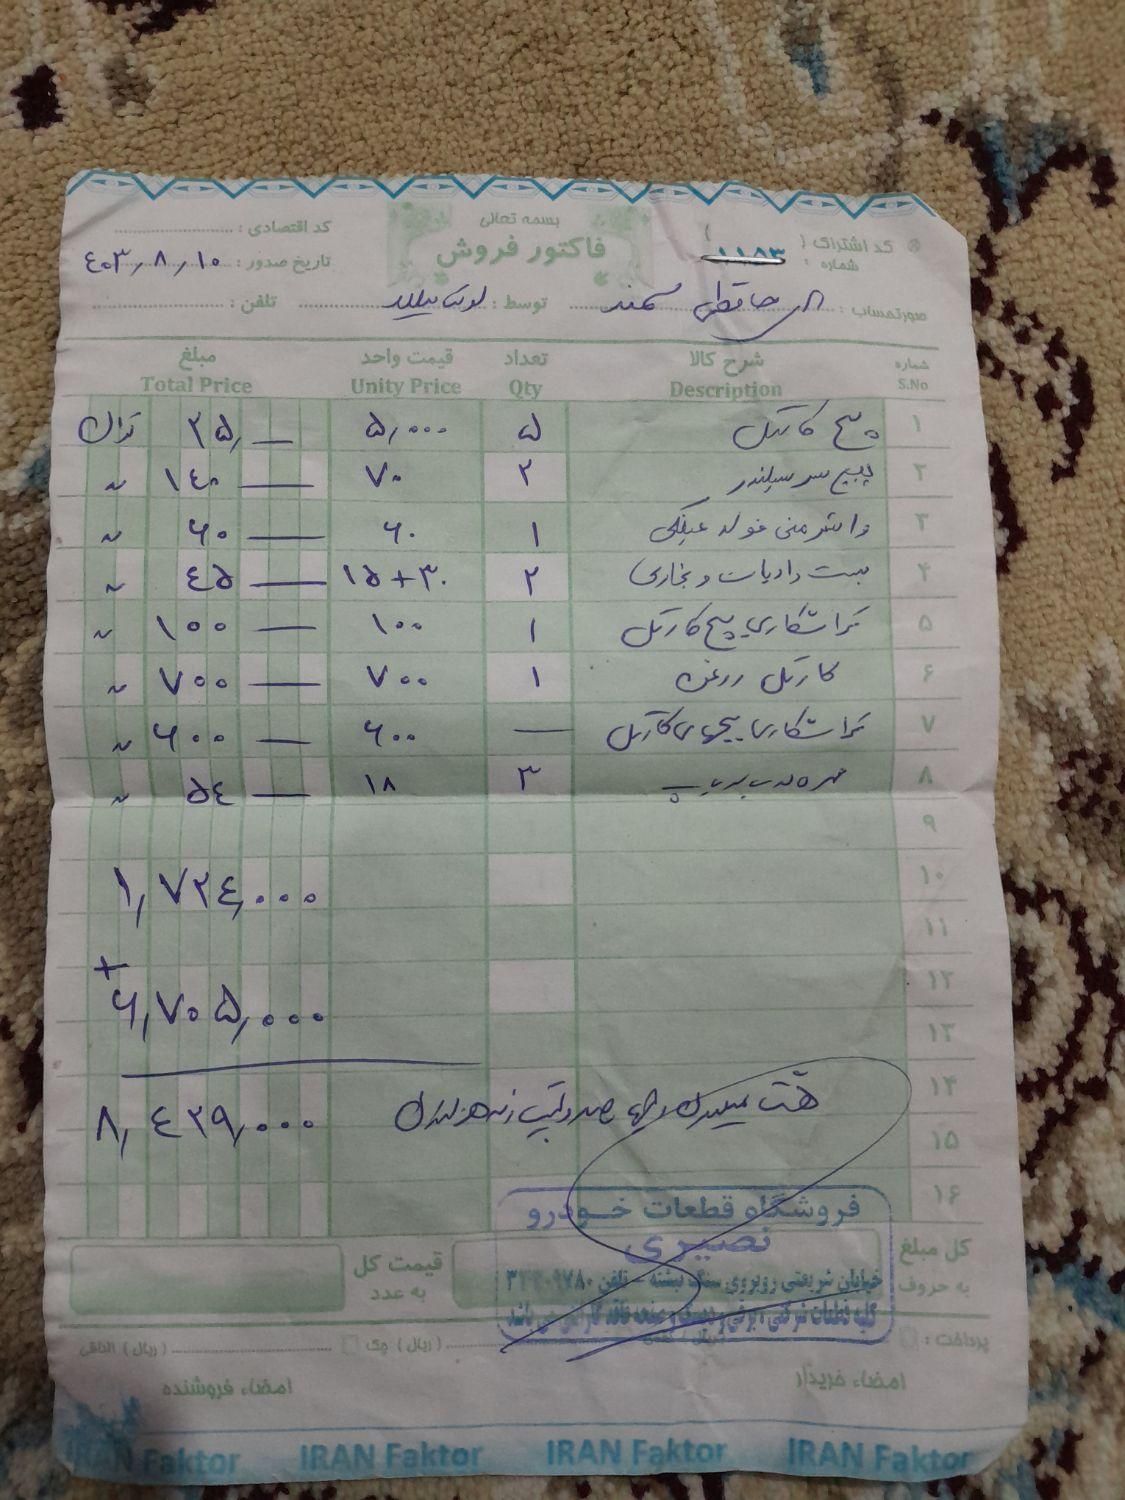 بسمه تعالی
فاکتور فروش
کد اشتراک ( )
شماره : ۱۱۵۳
کد اقتصادی :
تاریخ صدور : ۴۰۳/۸/۱۰
صورتحساب : سمند
توسط :
تلفن :
شماره شرح کالا تعداد قیمت واحد مبلغ
S.No Description Qty Unity Price Total Price
۱ پیچ کارتل ۵ ۵,۰۰۰ ۲۵, — تومان
۲ پیچ سرسیلندر ۲ ۷۰ ۱۴۰ — ״
۳ واشر منی فولد ۱ ۶۰ ۶۰ — ״
۴ بست رادیات و بخاری ۲ ۱۵+۳۰ ۴۵ — ״
۵ تراشکاری پیچ کارتل ۱ ۱۰۰ ۱۰۰ — ״
۶ کارتل روغن ۱ ۷۰۰ ۷۰۰ — ״
۷ تراشکاری پیچهای کارتل — ۶۰۰ ۶۰۰ — ״
۸ مهره ۳ ۱۸ ۵۴ — ״
۹
۱۰ ۱,۷۲۴,۰۰۰
۱۱
۱۲ +
۱۳ ۶,۷۰۵,۰۰۰
۱۴
هشت میلیون و چهار صد و بیست و نه هزار تومان
۱۵ ۸,۴۲۹,۰۰۰
۱۶
فروشگاه قطعات خودرو
نصیری
کل مبلغ به حروف
قیمت کل به عدد
خیابان شریعتی روبروی سنگ بیشته - تلفن
کلیه قطعات شرکتی، برقی و دیسک و صفحه فاقد گارانتی می باشد
پرداخت : (ریال) نقدی (ریال) چک (ریال) الباقی
امضاء خریدار امضاء فروشنده
IRAN Faktor IRAN Faktor IRAN Faktor IRAN Faktor